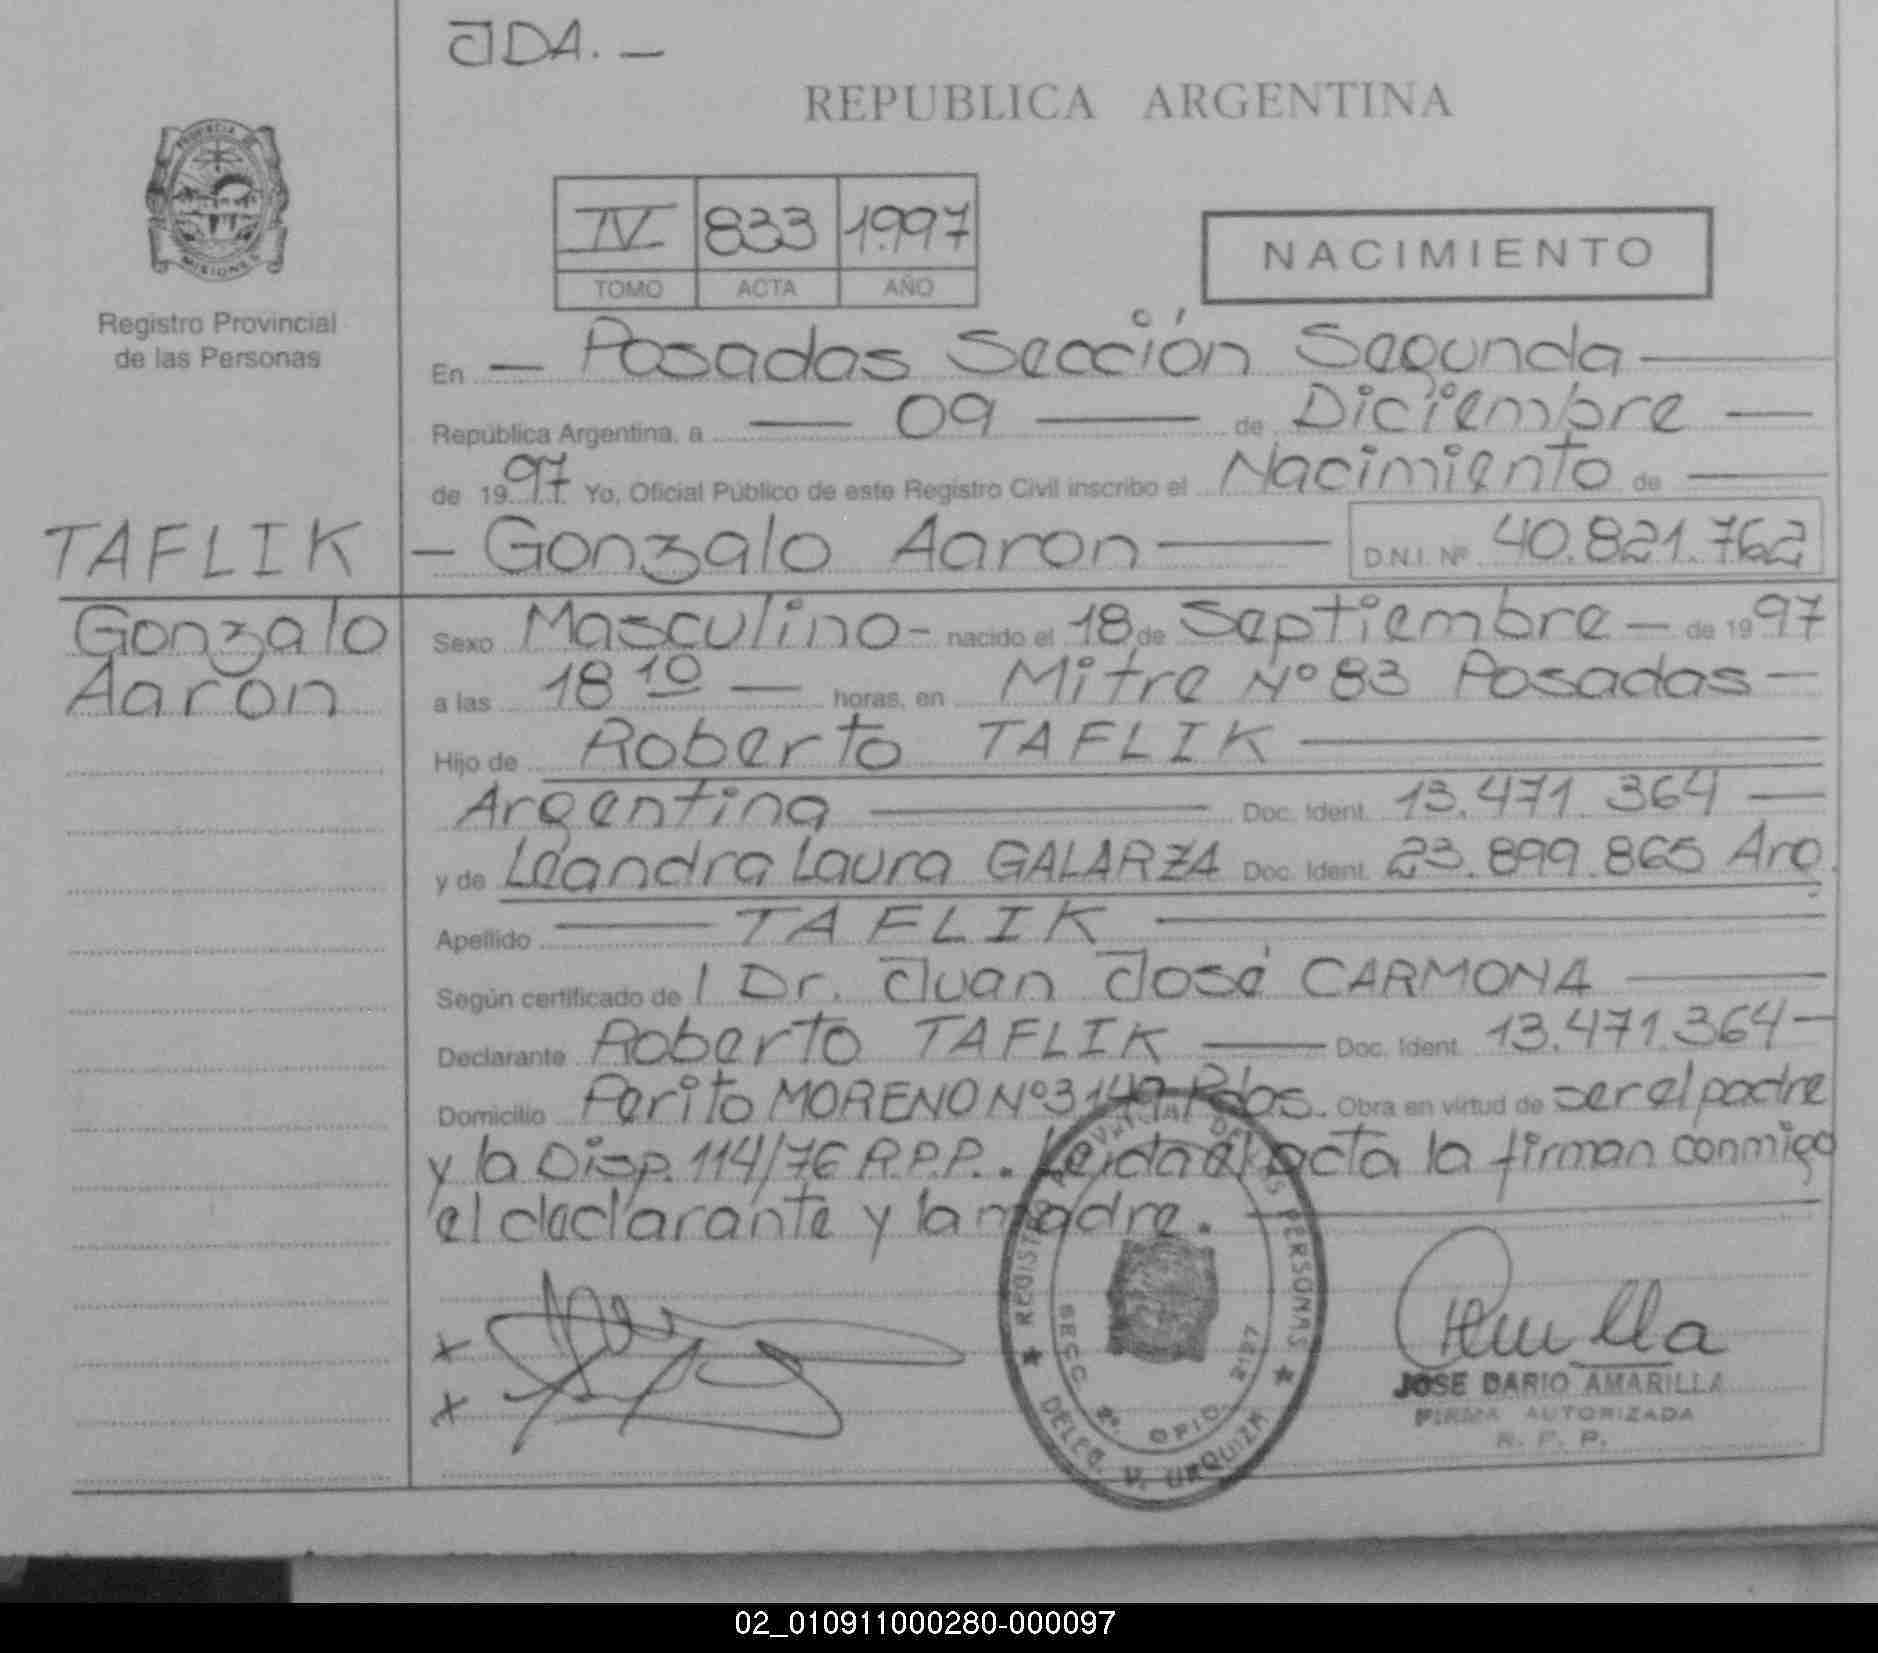 JDA. —
REPUBLICA ARGENTINA
PROVINCIA DE
MISIONES
Registro Provincial
de las Personas
IV 833 1997
TOMO ACTA AÑO
NACIMIENTO
En — Posadas Sección Segunda —
República Argentina, a — 09 — de Diciembre —
de 1997 Yo, Oficial Público de este Registro Civil inscribo el Nacimiento de —
TAFLIK
Gonzalo
Aaron
— Gonzalo Aaron — D.N.I. Nº 40.821.762
Sexo Masculino - nacido el 18 de Septiembre — de 1997
a las 18 10 — horas, en Mitre Nº 83 Posadas —
Hijo de Roberto TAFLIK —
Argentina — Doc. Ident. 13.471.364 —
y de Leandra Laura GALARZA Doc. Ident. 23.899.865 Arg.
Apellido — TAFLIK —
Según certificado de l Dr. Juan José CARMONA —
Declarante Roberto TAFLIK — Doc. Ident. 13.471.364 —
Domicilio Perito MORENO Nº 3149 Pdas. Obra en virtud de ser el padre
y la Disp. 114/76 R.P.P.. Leída el acta la firman conmigo
el declarante y la madre. —
REGISTRO PROVINCIAL DE LAS PERSONAS
SECC. 2º. OFIC. 2127
DELEG. V. URQUIZA
JOSE DARIO AMARILLA
FIRMA AUTORIZADA
R. P. P.
02_010911000280-000097